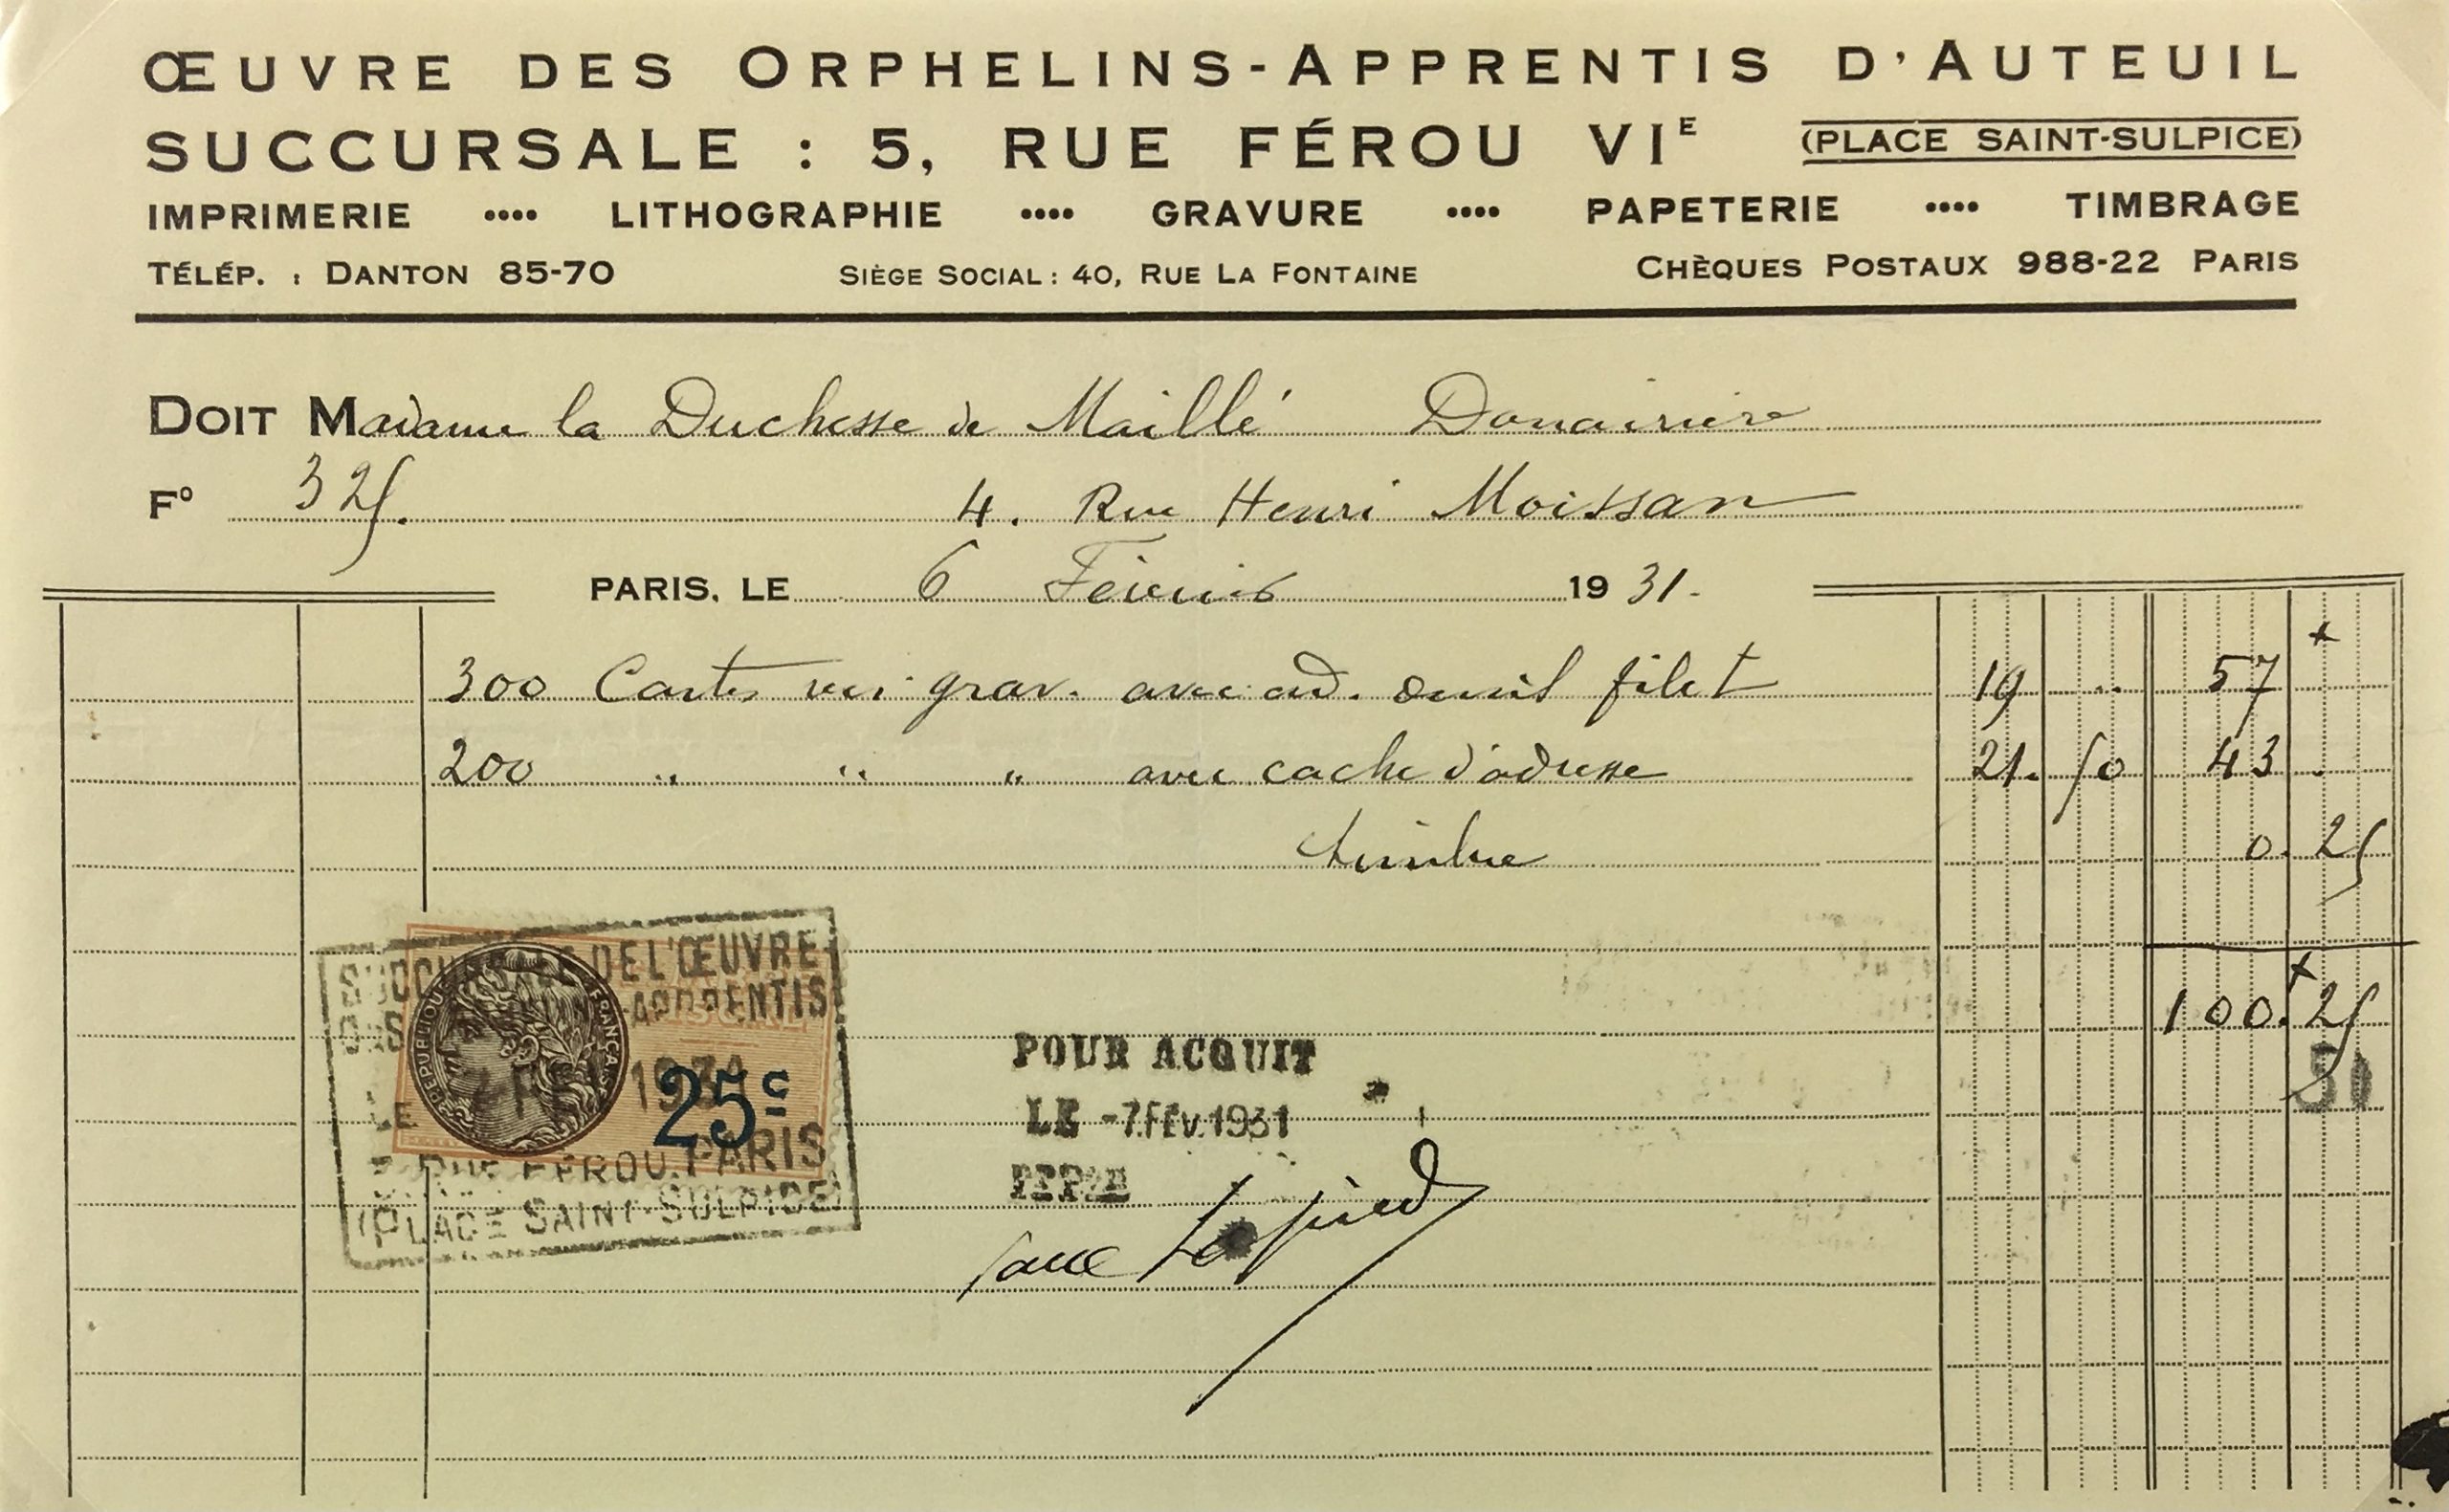 ŒUVRE DES ORPHELINS-APPRENTIS D'AUTEUIL
SUCCURSALE : 5, RUE FÉROU VIE (PLACE SAINT-SULPICE)
IMPRIMERIE •••• LITHOGRAPHIE •••• GRAVURE •••• PAPETERIE •••• TIMBRAGE
TÉLÉP. : DANTON 85-70 SIÈGE SOCIAL : 40, RUE LA FONTAINE CHÈQUES POSTAUX 988-22 PARIS
DOIT Madame la Duchesse de Maillé Douairière
F° 325. 4. Rue Henri Moissan
PARIS, LE 6 Février 1931.
300 Cartes vis. grav. avec ad. deuil filet 19 .. 57
200 " " " avec cache d'adresse 21. 50 43 .
timbre 0. 25
100. 25
50
SUCCURSALE DE L'ŒUVRE
DES -APPRENTIS
RÉPUBLIQUE FRANÇAISE
25c
LE 1931
5 RUE FÉROU, PARIS
(PLACE SAINT-SULPICE)
POUR ACQUIT
LE -7 FÉV. 1931